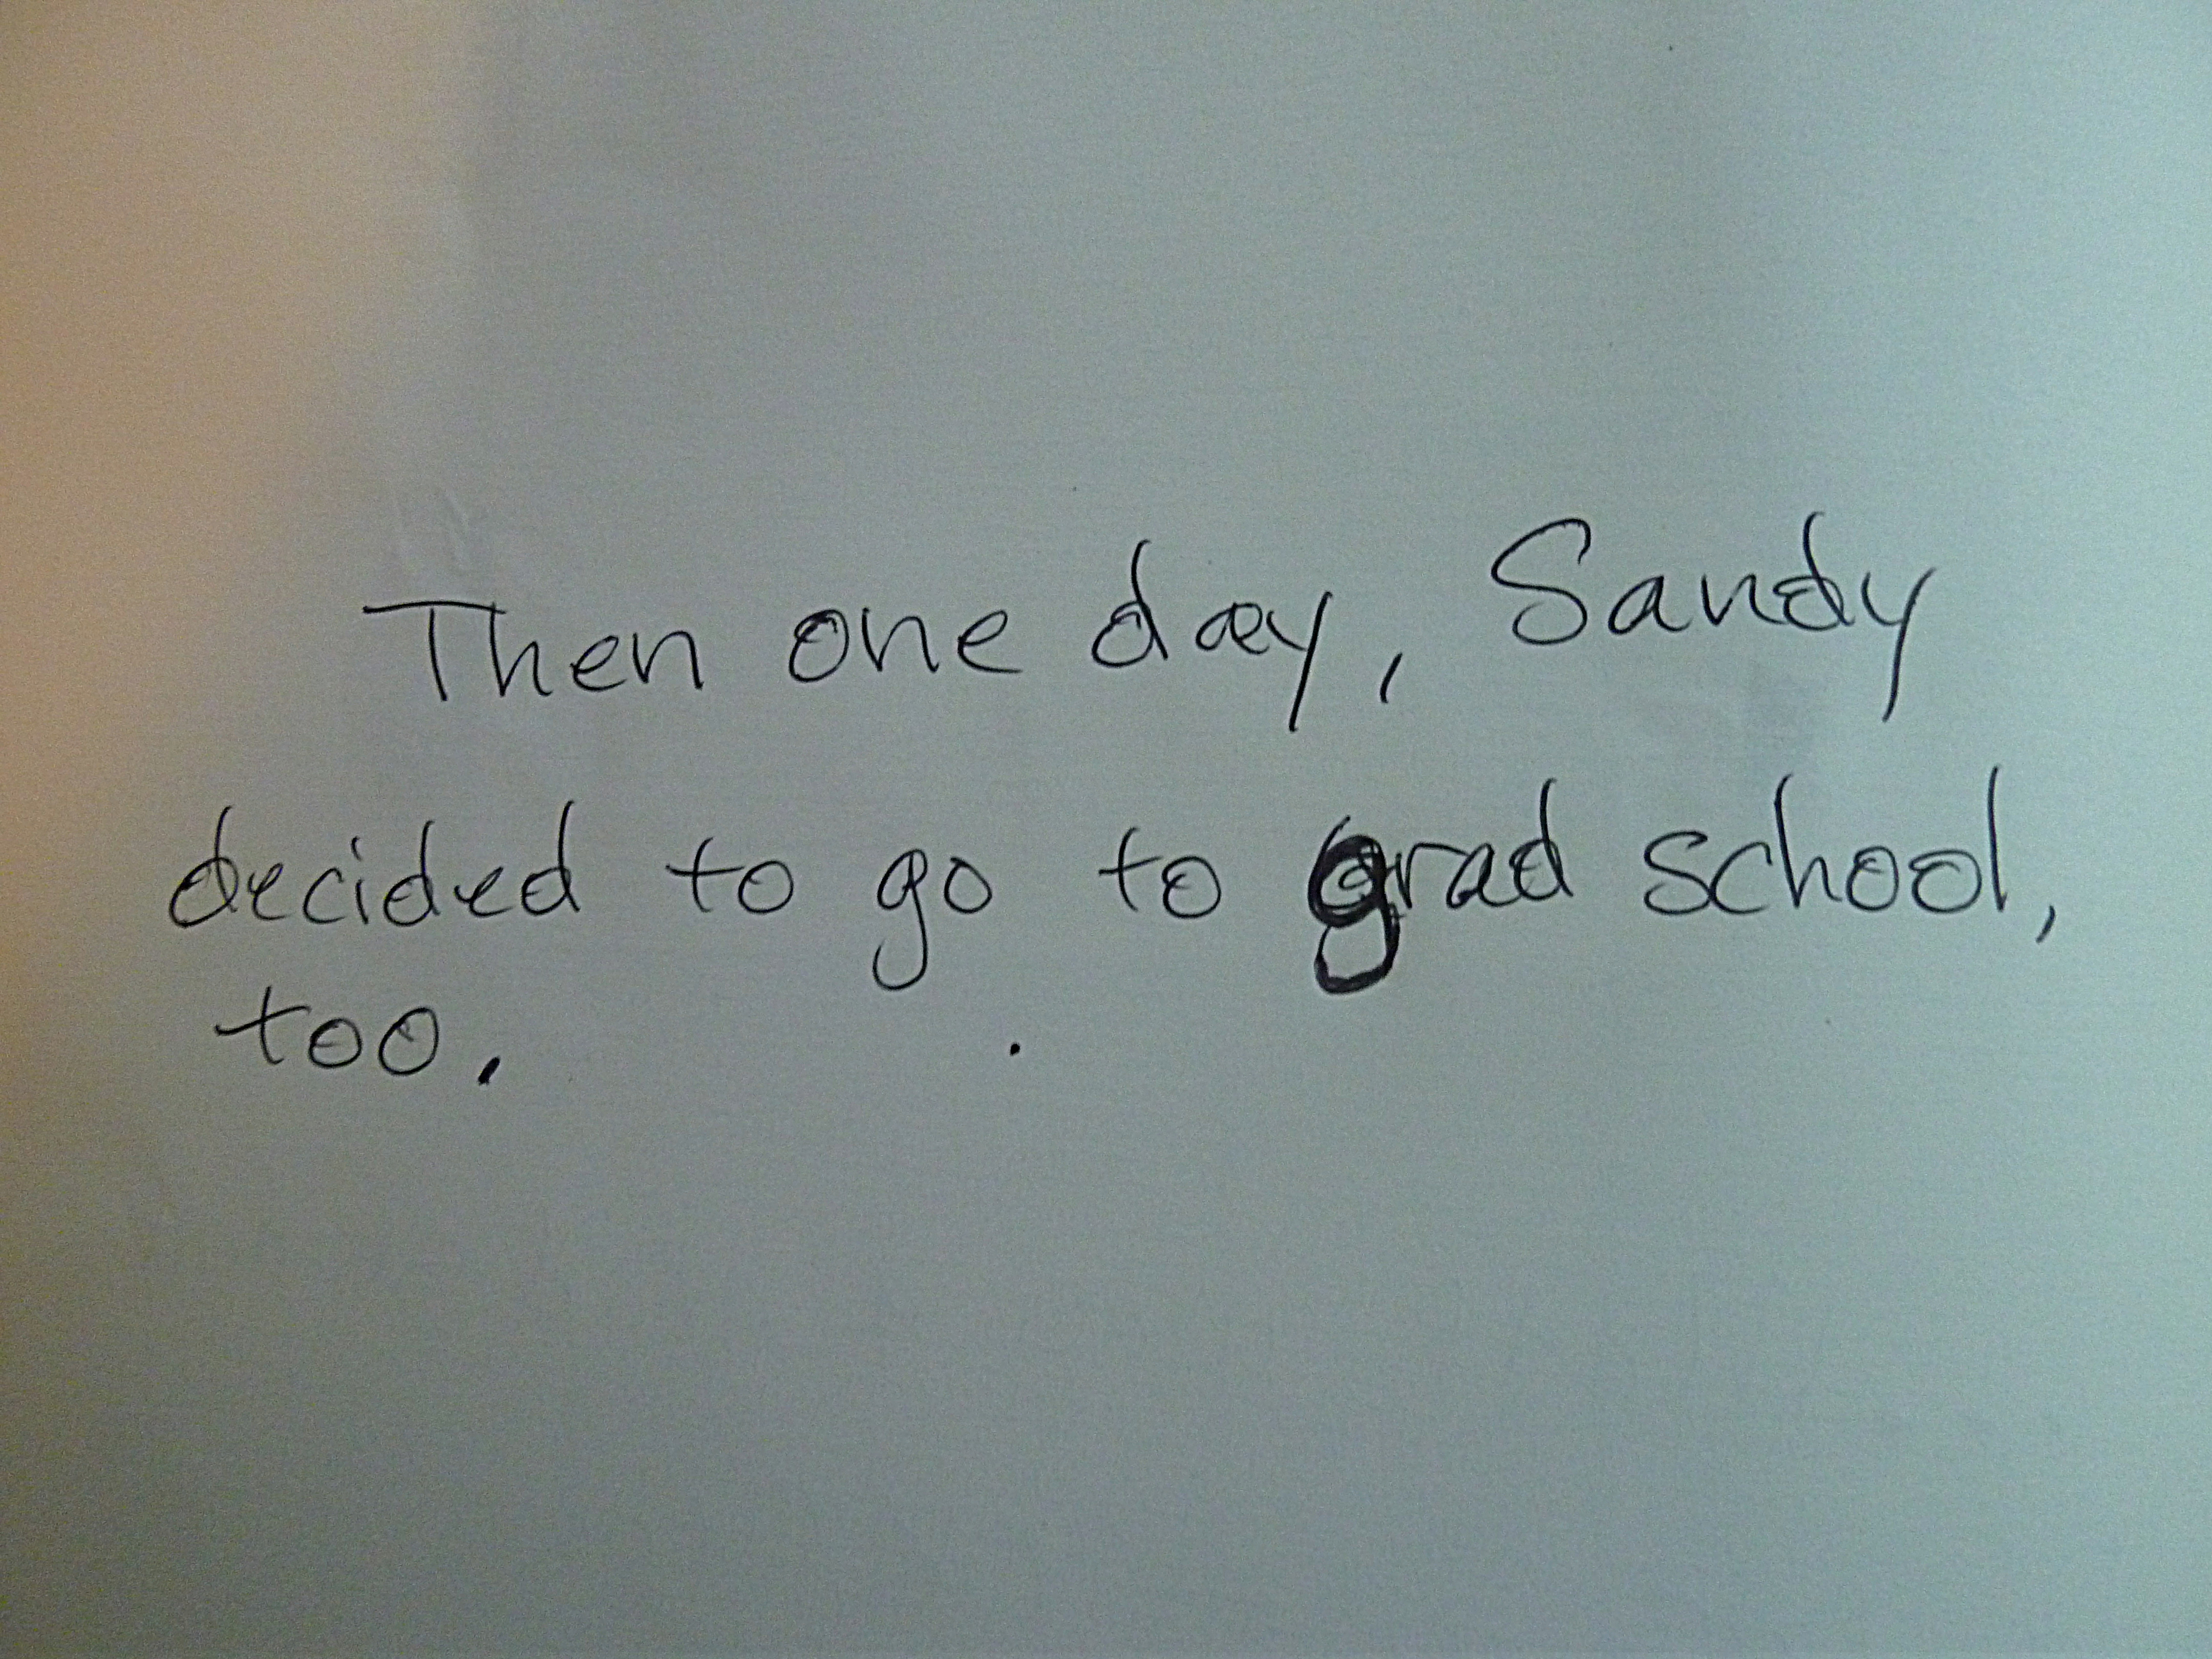 Then one day, Sandy
decided to go to grad school,
too.